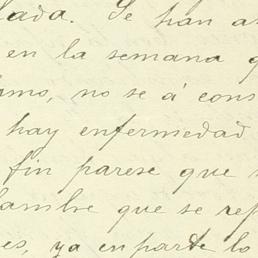 lada. Se han a
en la semana q
imo, no se á cons
hay enfermedad
fin parese que
ambre que se rep
es, ya en parte lo